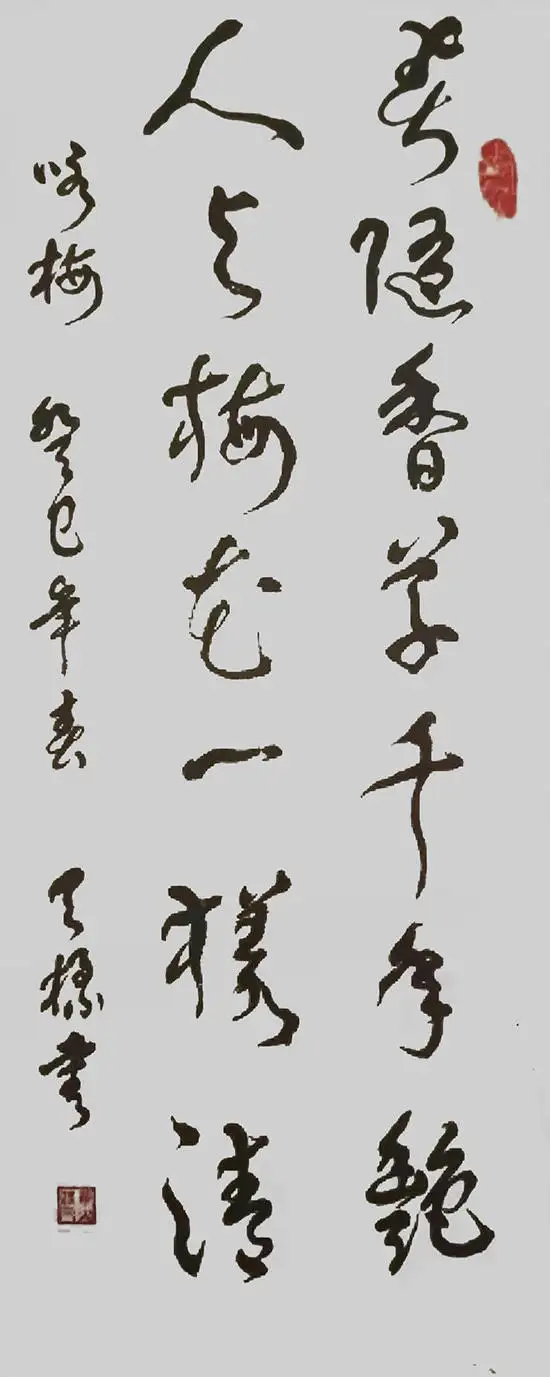 春随香草千年艳
人与梅花一样清
咏梅 癸巳年春 天樵书